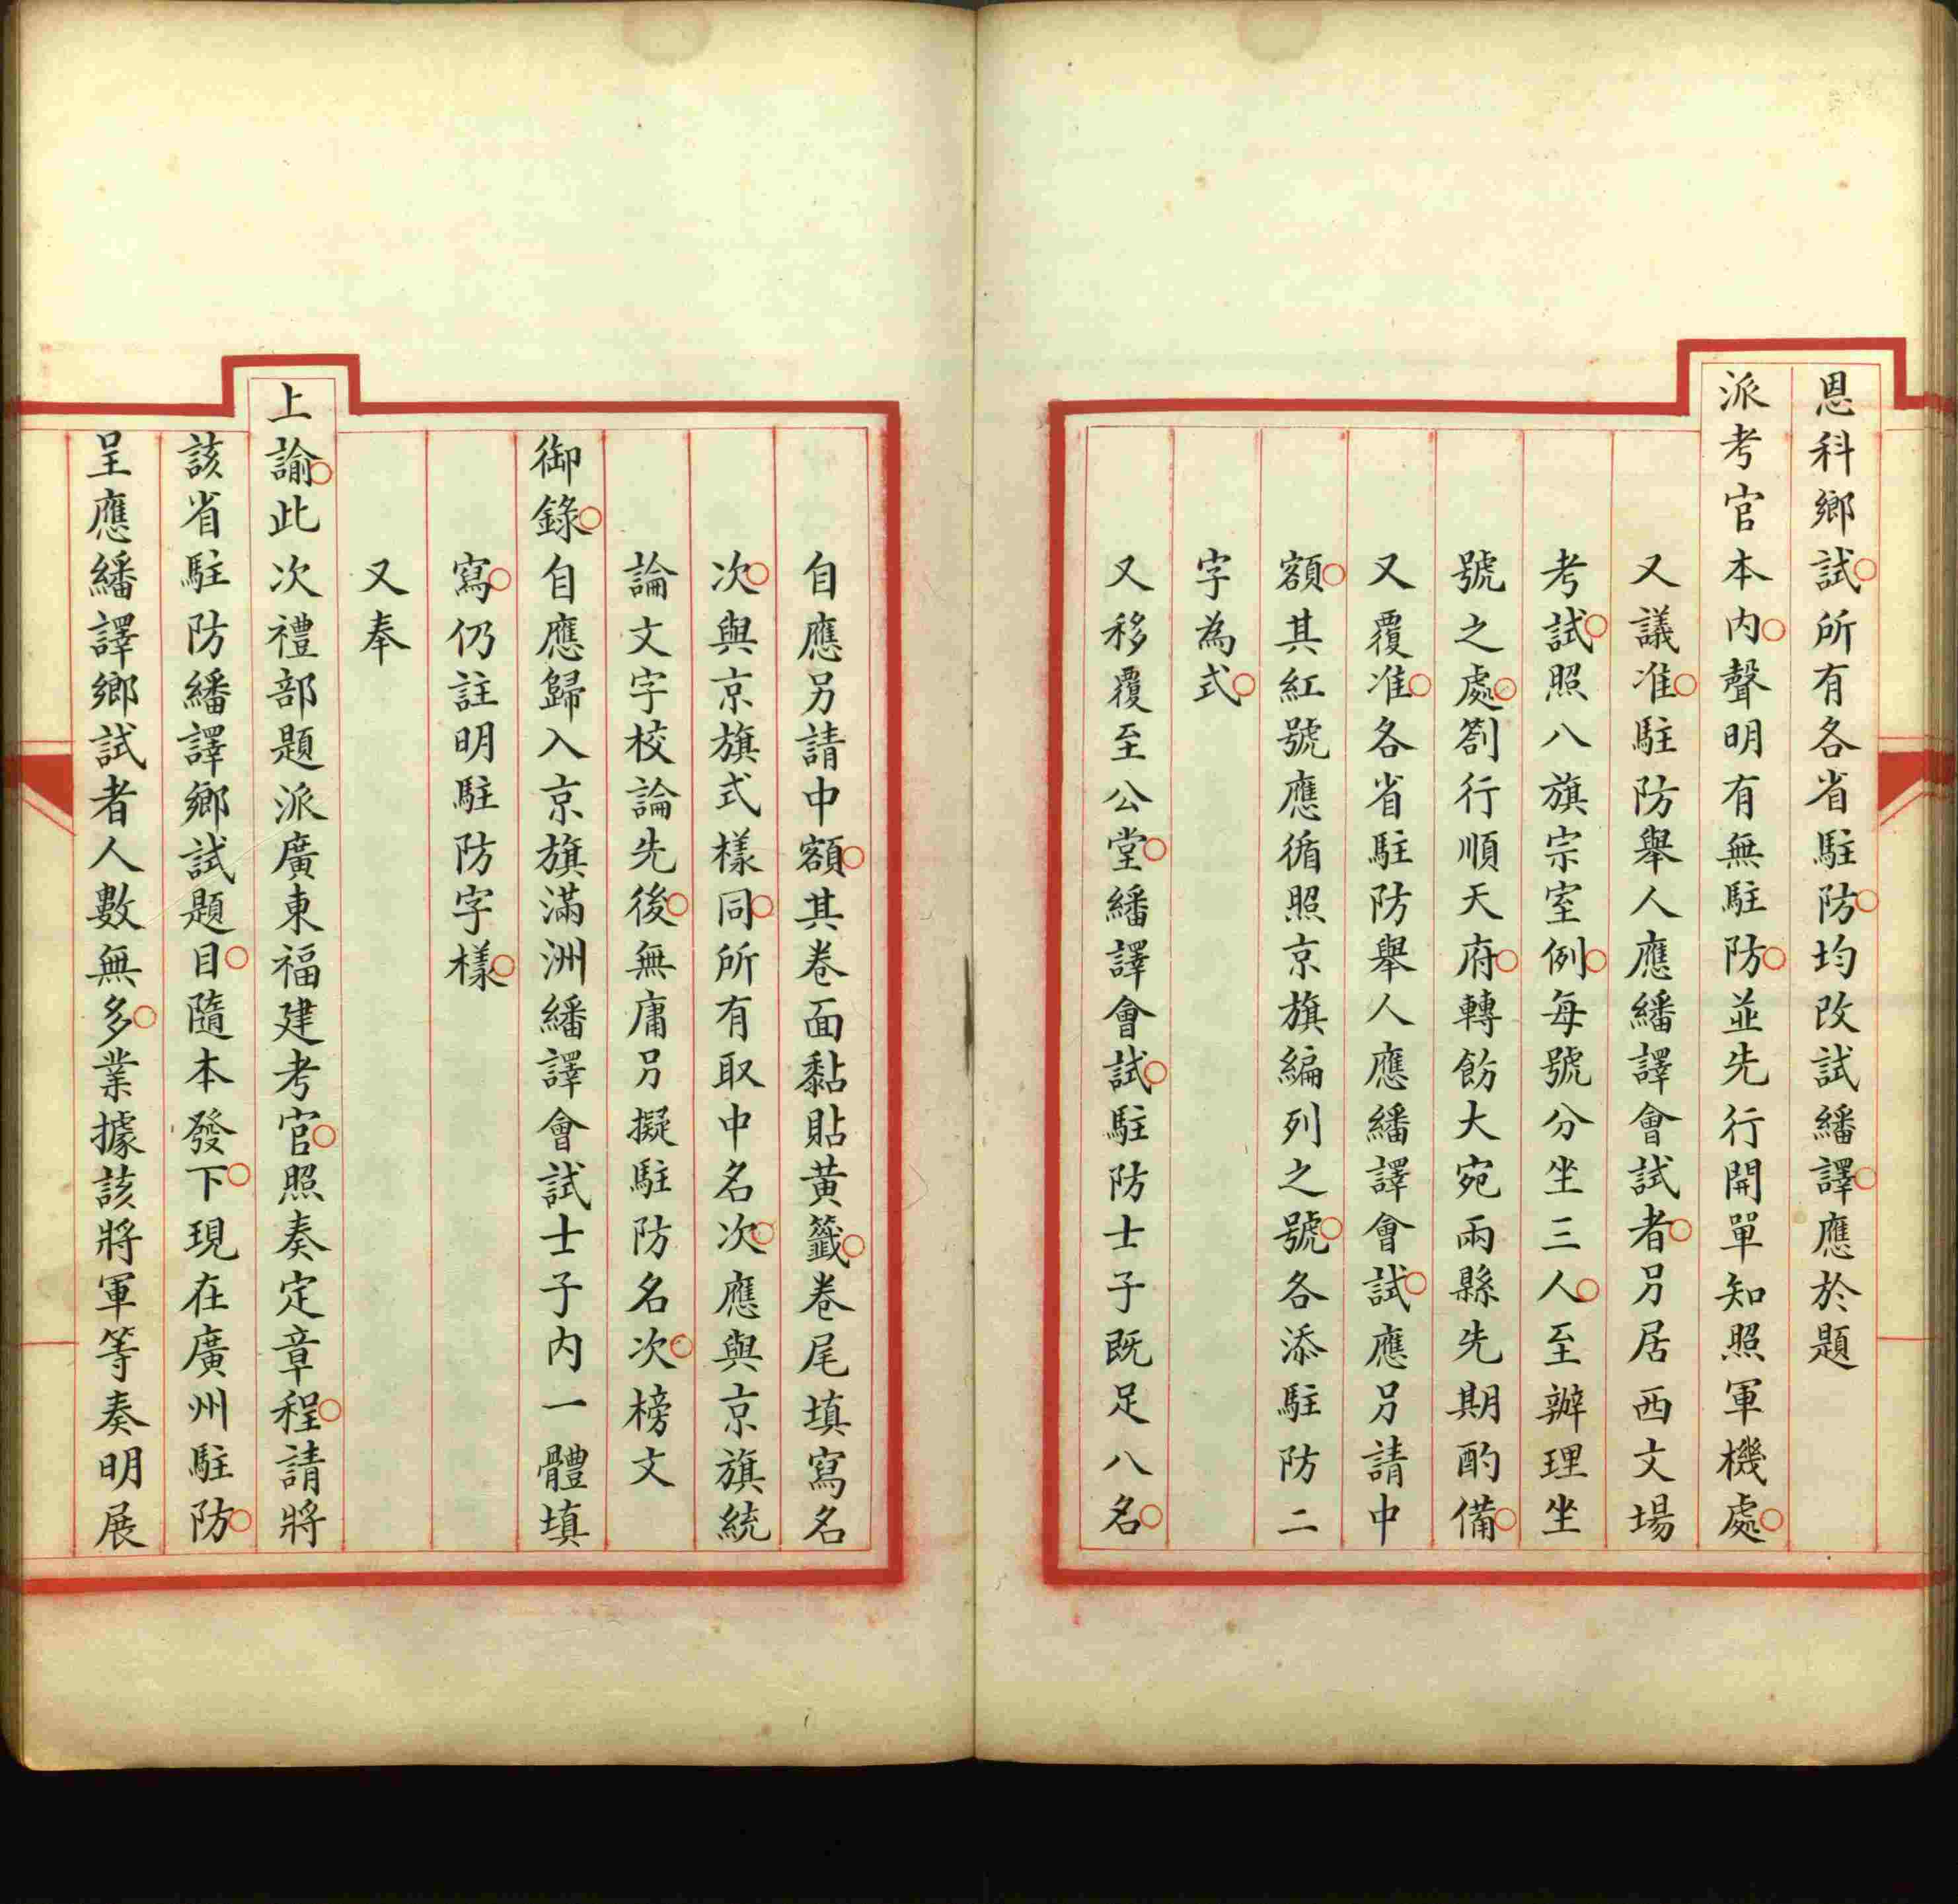 恩科鄉試所有各省駐防均改試繙譯應於題
派考官本內聲明有無駐防並先行開單知照軍機處
又議准駐防舉人應繙譯會試者另居西文場
考試照八旗宗室例每號分坐三人至辦理坐
號之處劄行順天府轉飭大宛兩縣先期酌備
又覆准各省駐防舉人應繙譯會試應另請中
額其紅號應循照京旗編列之號各添駐防二
字為式
又移覆至公堂繙譯會試駐防士子既足八名
自應另請中額其卷面黏貼黃籤卷尾填寫名
次與京旗式樣同所有取中名次應與京旗統
論文字校論先後無庸另擬駐防名次榜文
御錄自應歸入京旗滿洲繙譯會試士子內一體填
寫仍註明駐防字樣
又奉
上諭此次禮部題派廣東福建考官照奏定章程請將
該省駐防繙譯鄉試題目隨本發下現在廣州駐防
呈應繙譯鄉試者人數無多業據該將軍等奏明展